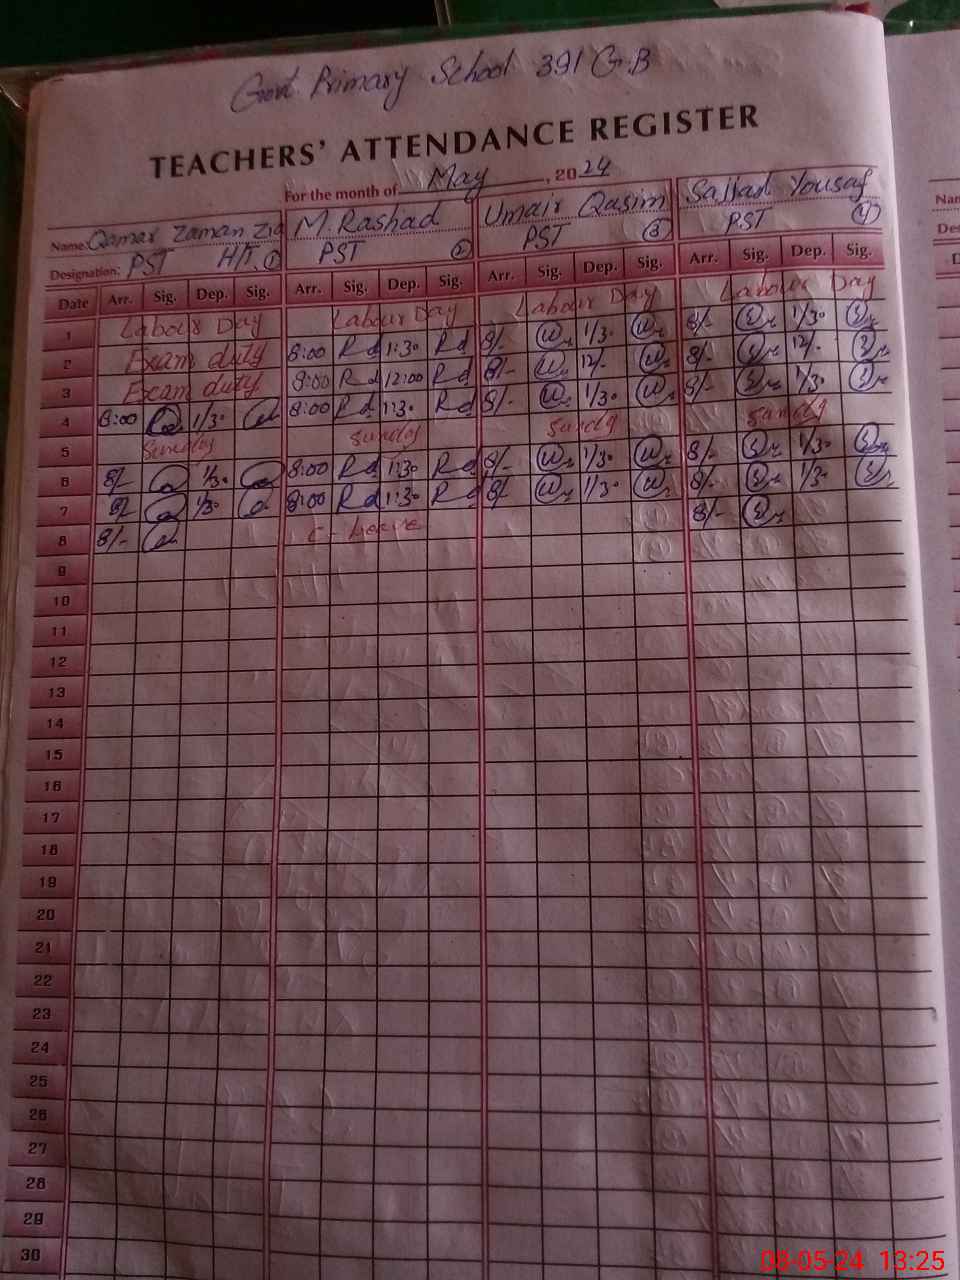 Govt Primary School 391 G.B
TEACHERS' ATTENDANCE REGISTER
For the month of May, 2024
Name: Qamar Zaman Zia M. Rashad Umair Qasim Sajjad Yousaf Nam
Designation: PST H/T. 1 PST 2 PST 3 PST 4 De
Date Arr. Sig. Dep. Sig. Arr. Sig. Dep. Sig. Arr. Sig. Dep. Sig. Arr. Sig. Dep. Sig. D
1 Labour Day Labour Day Labour Day Labour Day
2 Exam duty 8:00 Rd 1:30 Rd 8/- 1/30 8/- 1/30
3 Exam duty 8:00 Rd 12:00 Rd 8/- 12/- 8/- 12/-
4 8:00 1/30 8:00 Rd 1:30 Rd 8/- 1/30 8/- 1/30
5 Sunday Sunday Sunday Sunday
6 8/- 1/30 8:00 Rd 1:30 Rd 8/- 1/30 8/- 1/30
7 8/- 1/30 8:00 Rd 1:30 Rd 8/- 1/30 8/- 1/30
8 8/- C-Leave 8/-
9
10
11
12
13
14
15
16
17
18
19
20
21
22
23
24
25
26
27
28
29
30
08-05-24 13:25